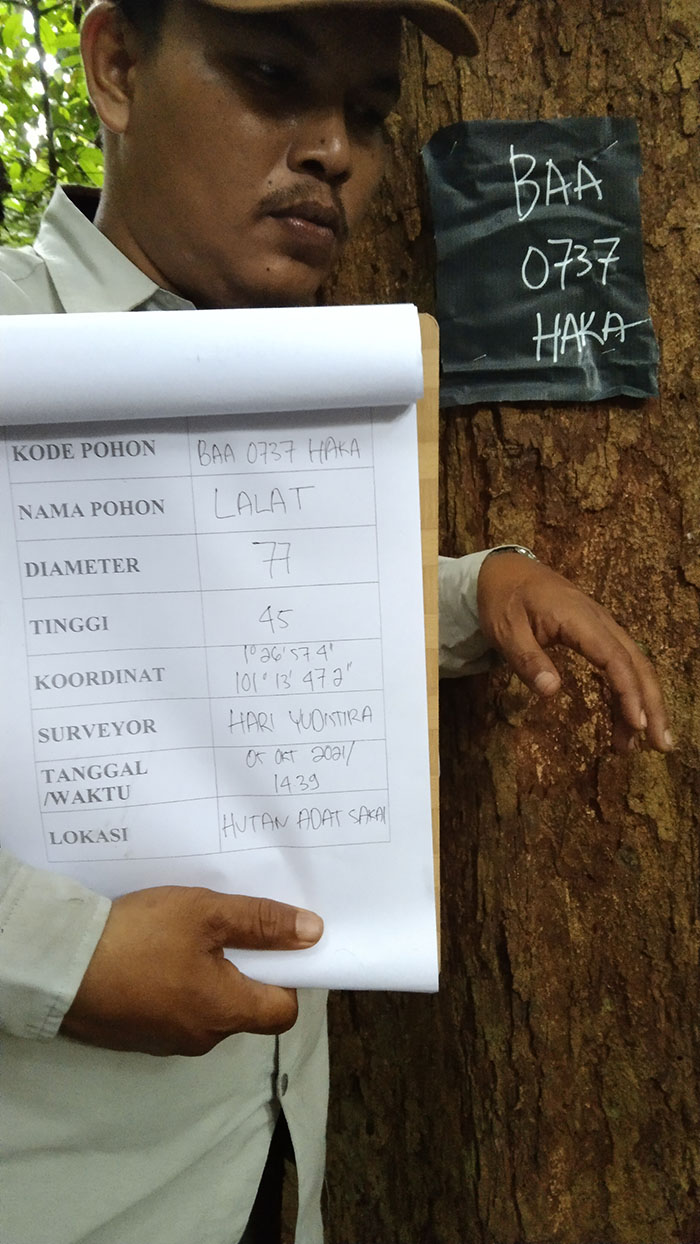 BAA
0737
HAKA
KODE POHON BAA 0737 HAKA
NAMA POHON LALAT
DIAMETER 77
TINGGI 45
KOORDINAT 1° 26' 57 4'
101° 13' 47 2"
SURVEYOR HARI YUDISTIRA
TANGGAL 05 OKT 2021/
/WAKTU 1439
LOKASI HUTAN ADAT SAKAI